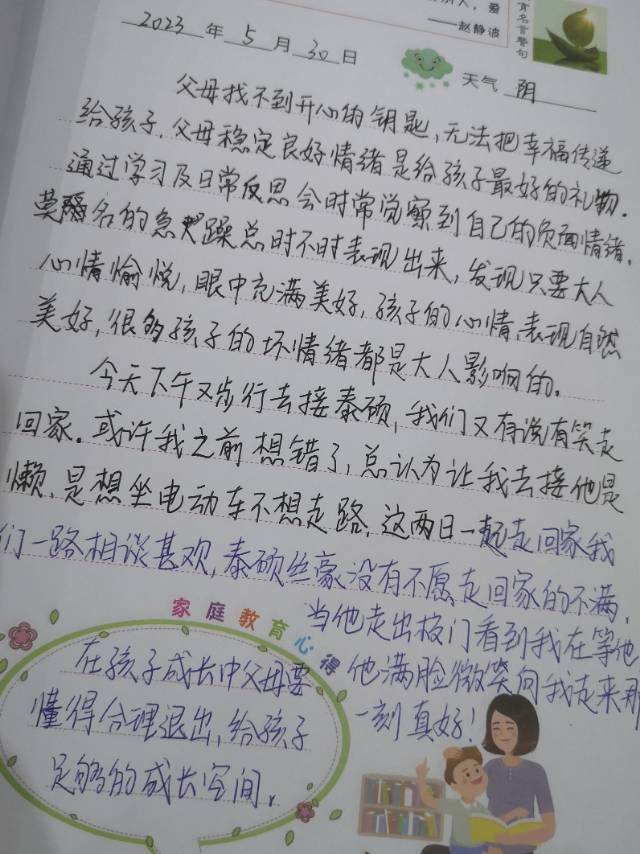 别人，爱
——赵静波
育名言警句
2023年5月30日
天气 阴
父母找不到开心的钥匙，无法把幸福传递
给孩子，父母稳定良好情绪是给孩子最好的礼物。
通过学习及日常反思会时常觉察到自己的负面情绪，
莫名的急躁总时不时表现出来，发现只要大人
心情愉悦，眼中充满美好，孩子的心情，表现自然
美好，很多孩子的坏情绪都是大人影响的。
今天下午又步行去接泰硕，我们又有说有笑走
回家。或许我之前想错了，总认为让我去接他是
懒，是想坐电动车不想走路，这两日一起走回家我
们一路相谈甚欢，泰硕丝毫没有不愿走回家的不满，
当他走出校门看到我在等他
他满脸微笑向我走来那
一刻真好！
家庭教育心得
在孩子成长中父母要
懂得合理退出，给孩子
足够的成长空间。